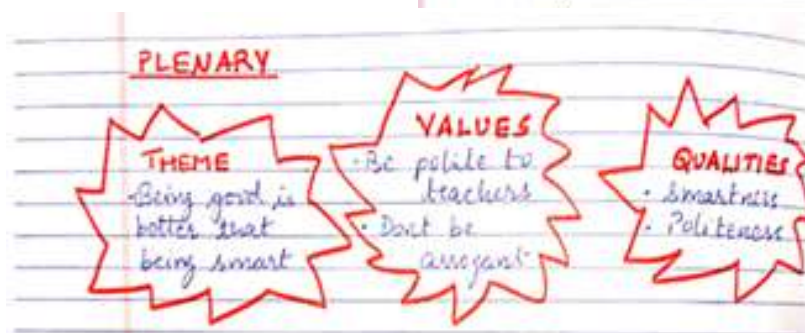 PLENARY
THEME
• Being good is
better that
being smart
VALUES
• Be polite to
teachers
• Dont be
arrogant
QUALITIES
• Smartness
• Politeness